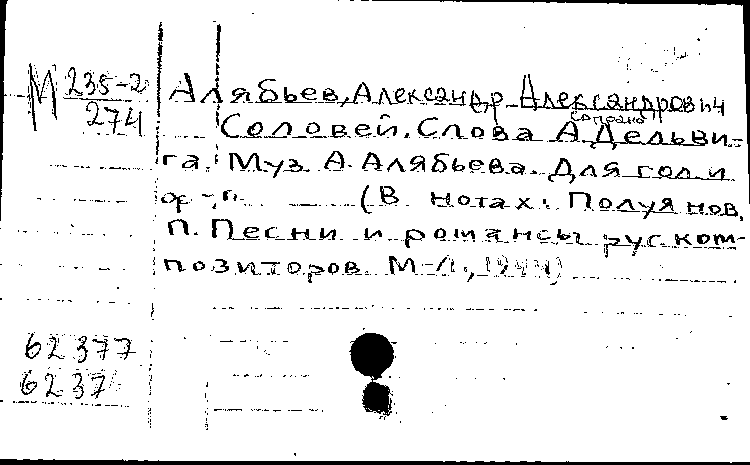 М 235-2
274
Алябьев, Александр Александрович
сопрано
Соловей. Слова А. Дельви-
га. Муз. А. Алябьева. Для гол. и
ор-п. (В нотах: Полуянов,
П. Песни и романсы рус. ком-
позиторов. М-Л., 1944)
62377
6237